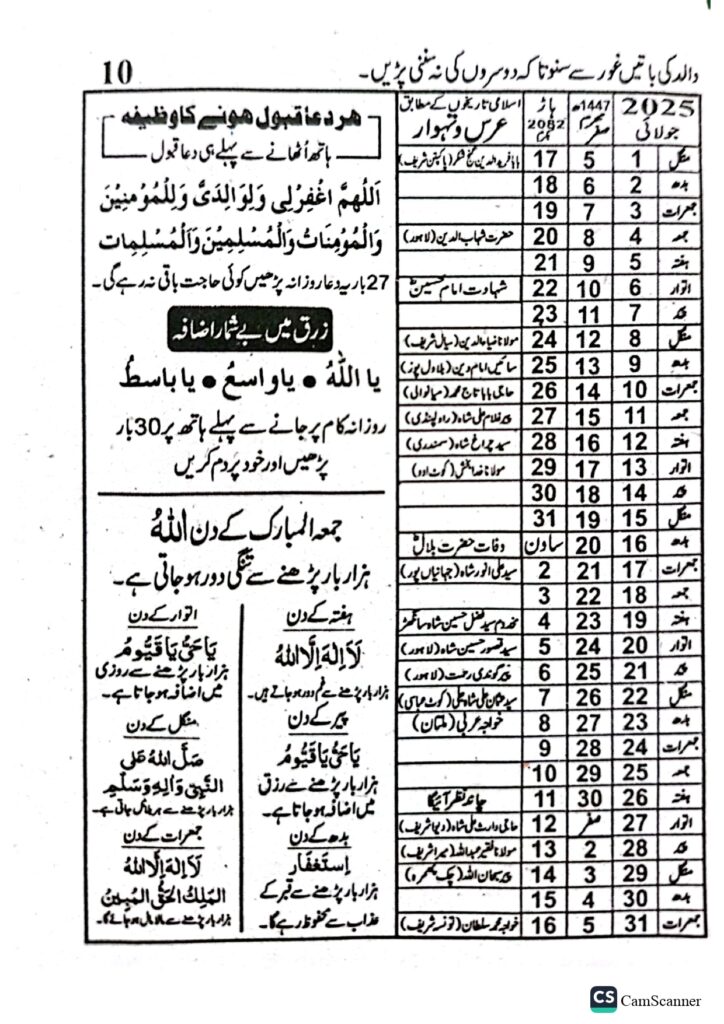 10
والد کی باتیں غور سے سنو تاکہ دوسروں کی نہ سننی پڑیں۔
2025 جولائی | 1447ھ محرم صفر | ہاڑ 2082 | اسلامی تاریخوں کے مطابق عرس و تہوار
منگل 1 5 17 بابا فرید الدین گنج شکر (پاکپتن شریف)
بدھ 2 6 18
جمعرات 3 7 19
جمعہ 4 8 20 حضرت شہاب الدین (لاہور)
ہفتہ 5 9 21
اتوار 6 10 22 شہادت امام حسینؓ
پیر 7 11 23
منگل 8 12 24 مولانا ضیاءالدین (سیال شریف)
بدھ 9 13 25 سائیں امام دین (بلاول پور)
جمعرات 10 14 26 حاجی بابا تاج محمد (میانوالی)
جمعہ 11 15 27 پیر غلام علی شاہ (راولپنڈی)
ہفتہ 12 16 28 سید چراغ شاہ (سمندری)
اتوار 13 17 29 مولانا خدا بخش (کوٹ ادو)
پیر 14 18 30
منگل 15 19 31
بدھ 16 20 ساون وفات حضرت بلالؓ
جمعرات 17 21 2 سید علی انور شاہ (جہانیاں پور)
جمعہ 18 22 3
ہفتہ 19 23 4 مخدوم سید فضل حسین شاہ سانگھڑ
اتوار 20 24 5 سید تصور حسین شاہ (لاہور)
پیر 21 25 6 پیر گوندی رحمت (لاہور)
منگل 22 26 7 سید عثمان علی شاہ (کوٹ عباسی)
بدھ 23 27 8 خواجہ عربی (ملتان)
جمعرات 24 28 9
جمعہ 25 29 10
ہفتہ 26 30 11 چاند نظر آئیگا
اتوار 27 صفر 12 حاجی وارث علی شاہ (دیوا شریف)
پیر 28 2 13 مولانا فقیر عبداللہ (میرا شریف)
منگل 29 3 14 پیر سبحان اللہ (چک)
بدھ 30 4 15
جمعرات 31 5 16 خواجہ محمد سلطان (تونسہ شریف)
ہر دعا قبول ہونے کا وظیفہ
ہاتھ اُٹھانے سے پہلے ہی دعا قبول
اَللّٰهُمَّ اغْفِرْلِی وَلِوَالِدَیَّ وَلِلْمُوْمِنِیْنَ
وَالْمُوْمِنَاتْ وَالْمُسْلِمِیْنَ وَالْمُسْلِمَات
27 بار یہ دعا روزانہ پڑھیں کوئی حاجت باقی نہ رہے گی۔
زرق میں بے شمار اضافہ
یا اللّٰهُ • یا واسعُ • یا باسطُ
روزانہ کام پر جانے سے پہلے ہاتھ پر 30 بار
پڑھیں اور خود پر دم کریں
جمعۃ المبارک کے دن اللّٰهُ
ہزار بار پڑھنے سے تنگی دور ہو جاتی ہے۔
ہفتہ کے دن
لَا اِلٰهَ اِلَّا اللّٰهُ
ہزار بار پڑھنے سے غم دور ہو جاتے ہیں۔
پیر کے دن
یَا حَیُّ یَا قَیُّوْمُ
ہزار بار پڑھنے سے رزق
میں اضافہ ہو جاتا ہے۔
بدھ کے دن
اِسْتَغْفَار
ہزار بار پڑھنے سے قبر کے
عذاب سے محفوظ رہے گا۔
اتوار کے دن
یَا حَیُّ یَا قَیُّوْمُ
ہزار بار پڑھنے سے روزی
میں اضافہ ہو جاتا ہے۔
منگل کے دن
صَلَّ اللّٰهُ عَلٰی
النَّبِیِّ وَاٰلِهٖ وَسَلَّمْ
ہزار بار پڑھنے سے ہر بلا ٹل جاتی ہے۔
جمعرات کے دن
لَا اِلٰهَ اِلَّا اللّٰهُ
الْمَلِكُ الْحَقُّ الْمُبِیْنُ
ہزار بار پڑھنے سے مالا مال ہو جائے گا۔
CS CamScanner